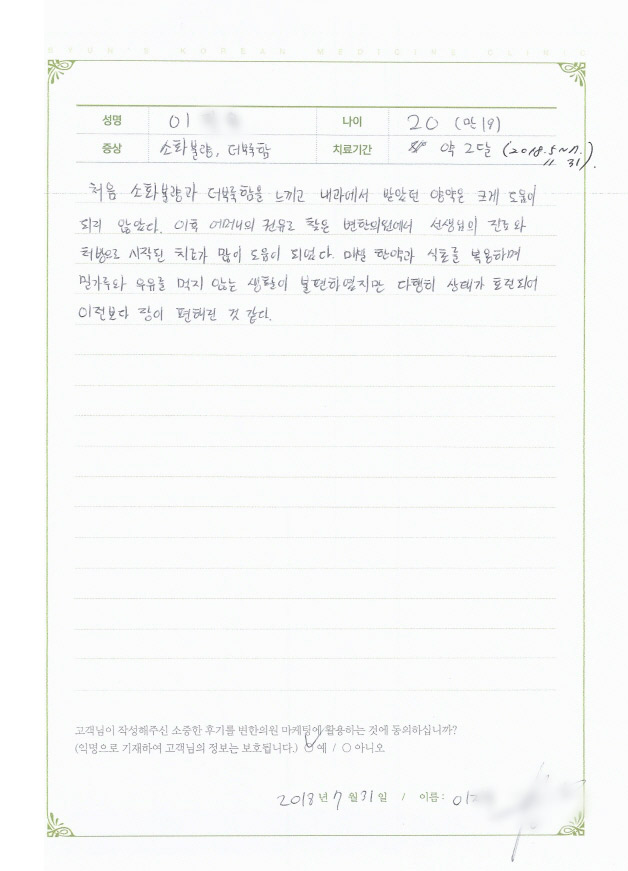 BYUN'S KOREAN MEDICINE CLINIC
성명 이 나이 20 (만19)
증상 소화불량, 더부룩함 치료기간 약 2달 (2018.5~7.
11 31).
처음 소화불량과 더부룩함을 느끼고 내과에서 받았던 양약은 크게 도움이
되지 않았다. 이후 어머니의 권유로 찾은 변한의원에서 선생님의 진료와
처방으로 시작된 치료가 많이 도움이 되었다. 매일 한약과 식초를 복용하며
밀가루와 우유를 먹지 않는 생활이 불편하였지만 다행히 상태가 호전되어
이전보다 장이 편해진 것 같다.
고객님이 작성해주신 소중한 후기를 변한의원 마케팅에 활용하는 것에 동의하십니까?
(익명으로 기재하여 고객님의 정보는 보호됩니다.) ○ 예 / ○ 아니오
2018 년 7 월 31 일 / 이름 : 이